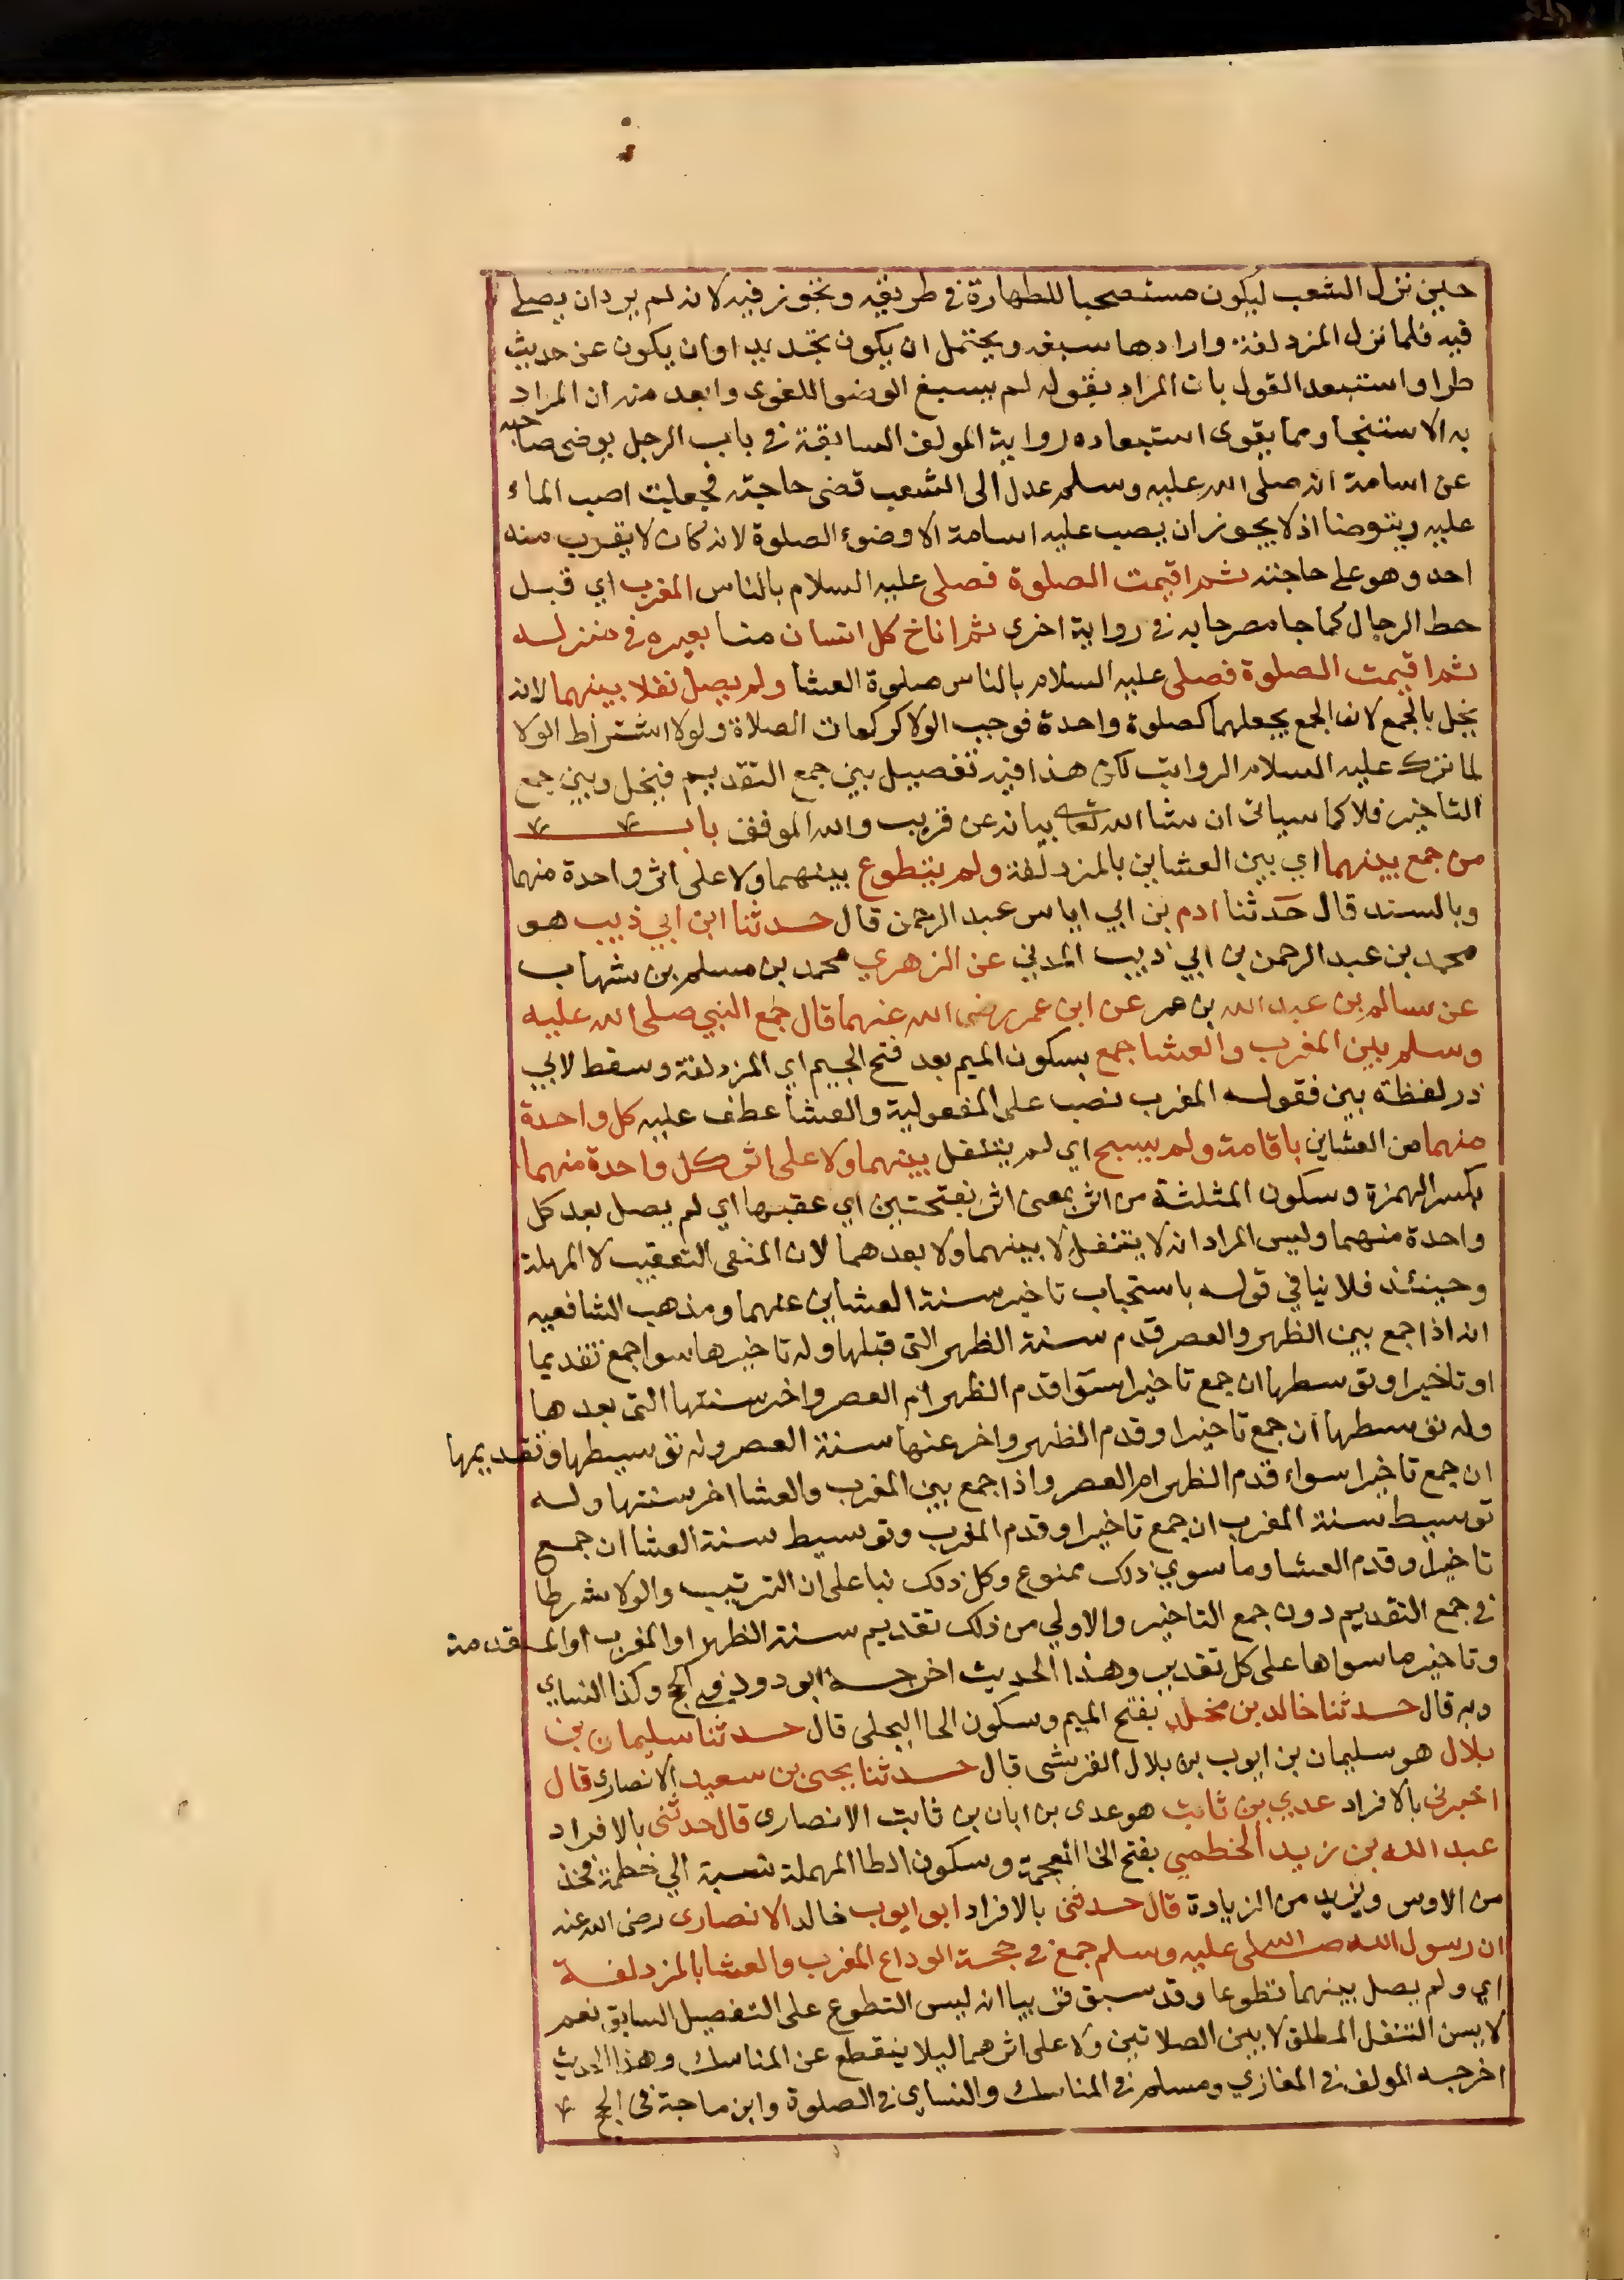 حين نزل الشعب ليكون مستصحبا للطهارة في طريقه وتجوز فيه لانه لم يرد ان يصلي
فيه فلما نزل المزدلفة وارادها سبغه ويحتمل ان يكون تجديد اوان يكون عن حديث
طرا واستبعد القول بان المراد بقوله لم يسبغ الوضو اللغوى وابعد منه ان المراد
به الاستنجا ومما يقوى استبعاده رواية المولف السابقة في باب الرجل يوضى صاحبه
عن اسامة انه صلى الله عليه وسلم عدل الى الشعب قضى حاجته فجعلت اصب الماء
عليه ويتوضا اذ لا يجوز ان يصب عليه اسامة الا وضوء الصلوة لانه كان لا يقرب منه
احد وهو على حاجته ثم اقيمت الصلوة فصلى عليه السلام بالناس المغرب اي قبل
حط الرحال كما جا مصرحا به في رواية اخرى ثم اناخ كل انسان منا بعيره في منزله
ثم اقيمت الصلوة فصلى عليه السلام بالناس صلوة العشا ولم يصل نفلا بينهما لانه
يخل بالجمع لان الجمع يجعلهما كصلوة واحدة فوجب الولا كركعات الصلاة ولولا اشتراط الولا
لما ترك عليه السلام الرواتب لكن هذا فيه تفصيل بين جمع التقديم فيخل وبين جمع
التاخير فلا كما سياتى ان شا الله تعالى بيانه عن قريب والله الموفق باب
من جمع بينهما اي بين العشاين بالمزدلفة ولم يتطوع بينهما ولا على اثر واحدة منهما
وبالسند قال حدثنا ادم بن ابي اياس عبد الرحمن قال حدثنا ابن ابي ذيب هو
محمد بن عبد الرحمن بن ابي ذيب المدني عن الزهري محمد بن مسلم بن شهاب
عن سالم بن عبد الله بن عمر عن ابن عمر رضى الله عنهما قال جمع النبي صلى الله عليه
وسلم بين المغرب والعشا جمع بسكون الميم بعد فتح الجيم اي المزدلفة وسقط لابي
ذر لفظة بين فقوله المغرب نصب على المفعولية والعشا عطف عليه كل واحدة
منهما من العشاين باقامة ولم يسبح اي لم يتنفل بينهما ولا على اثر كل واحدة منهما
بكسر الهمزة وسكون المثلثة من اثر بمعنى اثر بفتحتين اي عقبها اي لم يصل بعد كل
واحدة منهما وليس المراد انه لا يتنفل لا بينهما ولا بعدهما لان المنفى التعقيب لا المهلة
وحينئذ فلا ينافي قوله باستحباب تاخير سنة العشاين عنهما ومذهب الشافعيه
انه اذا جمع بين الظهر والعصر قدم سنة الظهر التى قبلها وله تاخيرها سوا جمع تقديما
او تاخيرا وتوسطها ان جمع تاخيرا سوا قدم الظهر ام العصر واخر سنتها التى بعدها
وله توسطها ان جمع تاخيرا وقدم الظهر واخر عنها سنة العصر وله توسيطها وتقديمها
ان جمع تاخيرا سواء قدم الظهر ام العصر واذا جمع بين المغرب والعشا اخر سنتها وله
توسيط سنة المغرب ان جمع تاخيرا وقدم المغرب وتوسيط سنة العشا ان جمع
تاخيرا وقدم العشا وما سوي ذلك ممنوع وكل ذلك بنا على ان الترتيب والولا شرطا
في جمع التقديم دون جمع التاخير والاولي من ذلك تقديم سنة الظهر او المغرب او المقدمة
وتاخير ما سواها على كل تقدير وهذا الحديث اخرجه ابو دود في الحج وكذا النساي
وبه قال حدثنا خالد بن مخلد بفتح الميم وسكون الخا البجلى قال حدثنا سليمان بن
بلال هو سليمان بن ايوب بن بلال القرشى قال حدثنا يحيى بن سعيد الانصارى قال
اخبرنى بالافراد عدي بن ثابت هو عدى بن ابان بن ثابت الانصارى قال حدثنى بالافراد
عبد الله بن زيد الخطمي بفتح الخا المعجمة وسكون الطا المهملة نسبة الي خطمة فخذ
من الاوس ويزيد من الزيادة قال حدثنى بالافراد ابو ايوب خالد الانصارى رضى الله عنه
ان رسول الله صلى الله عليه وسلم جمع في حجة الوداع المغرب والعشا بالمزدلفة
اي ولم يصل بينهما تطوعا وقد سبق قريبا انه ليس التطوع على التفصيل السابق نعم
لا يسن التنفل المطلق لا بين الصلاتين ولا على اثرهما ليلا ينقطع عن المناسك وهذا الحديث
اخرجه المولف في المغازي ومسلم في المناسك والنساي في الصلوة وابن ماجة في الحج